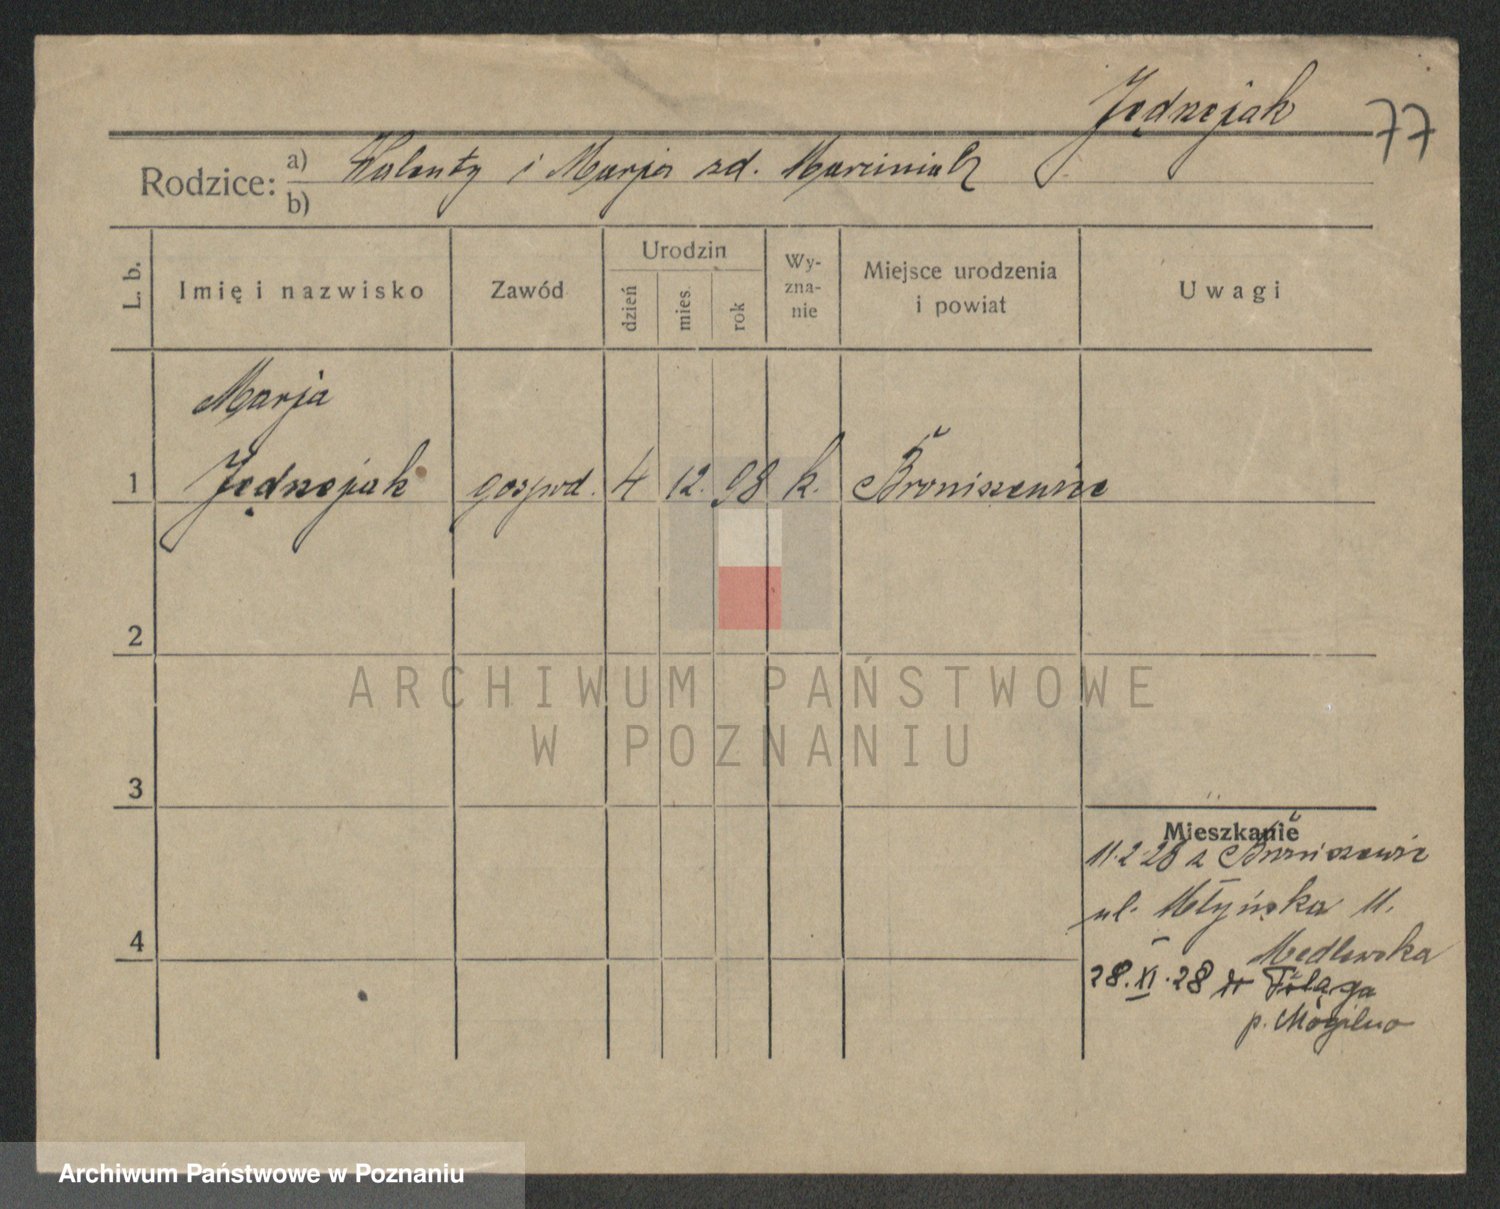 Jędrzejak
77
Rodzice: a) Walenty i Marja zd. Marciniak
b)
L. b. Imię i nazwisko Zawód Urodzin dzień mies. rok Wy-zna-nie Miejsce urodzenia i powiat Uwagi
Marja
1 Jędrzejak gospod. 4 12. 98 k. Broniszewice
2
ARCHIWUM PAŃSTWOWE
W POZNANIU
3
Mieszkanie
11.2.28 z Broniszewic
ul. Młyńska 11.
4
28.XI.28 
p. Mogilno
Archiwum Państwowe w Poznaniu